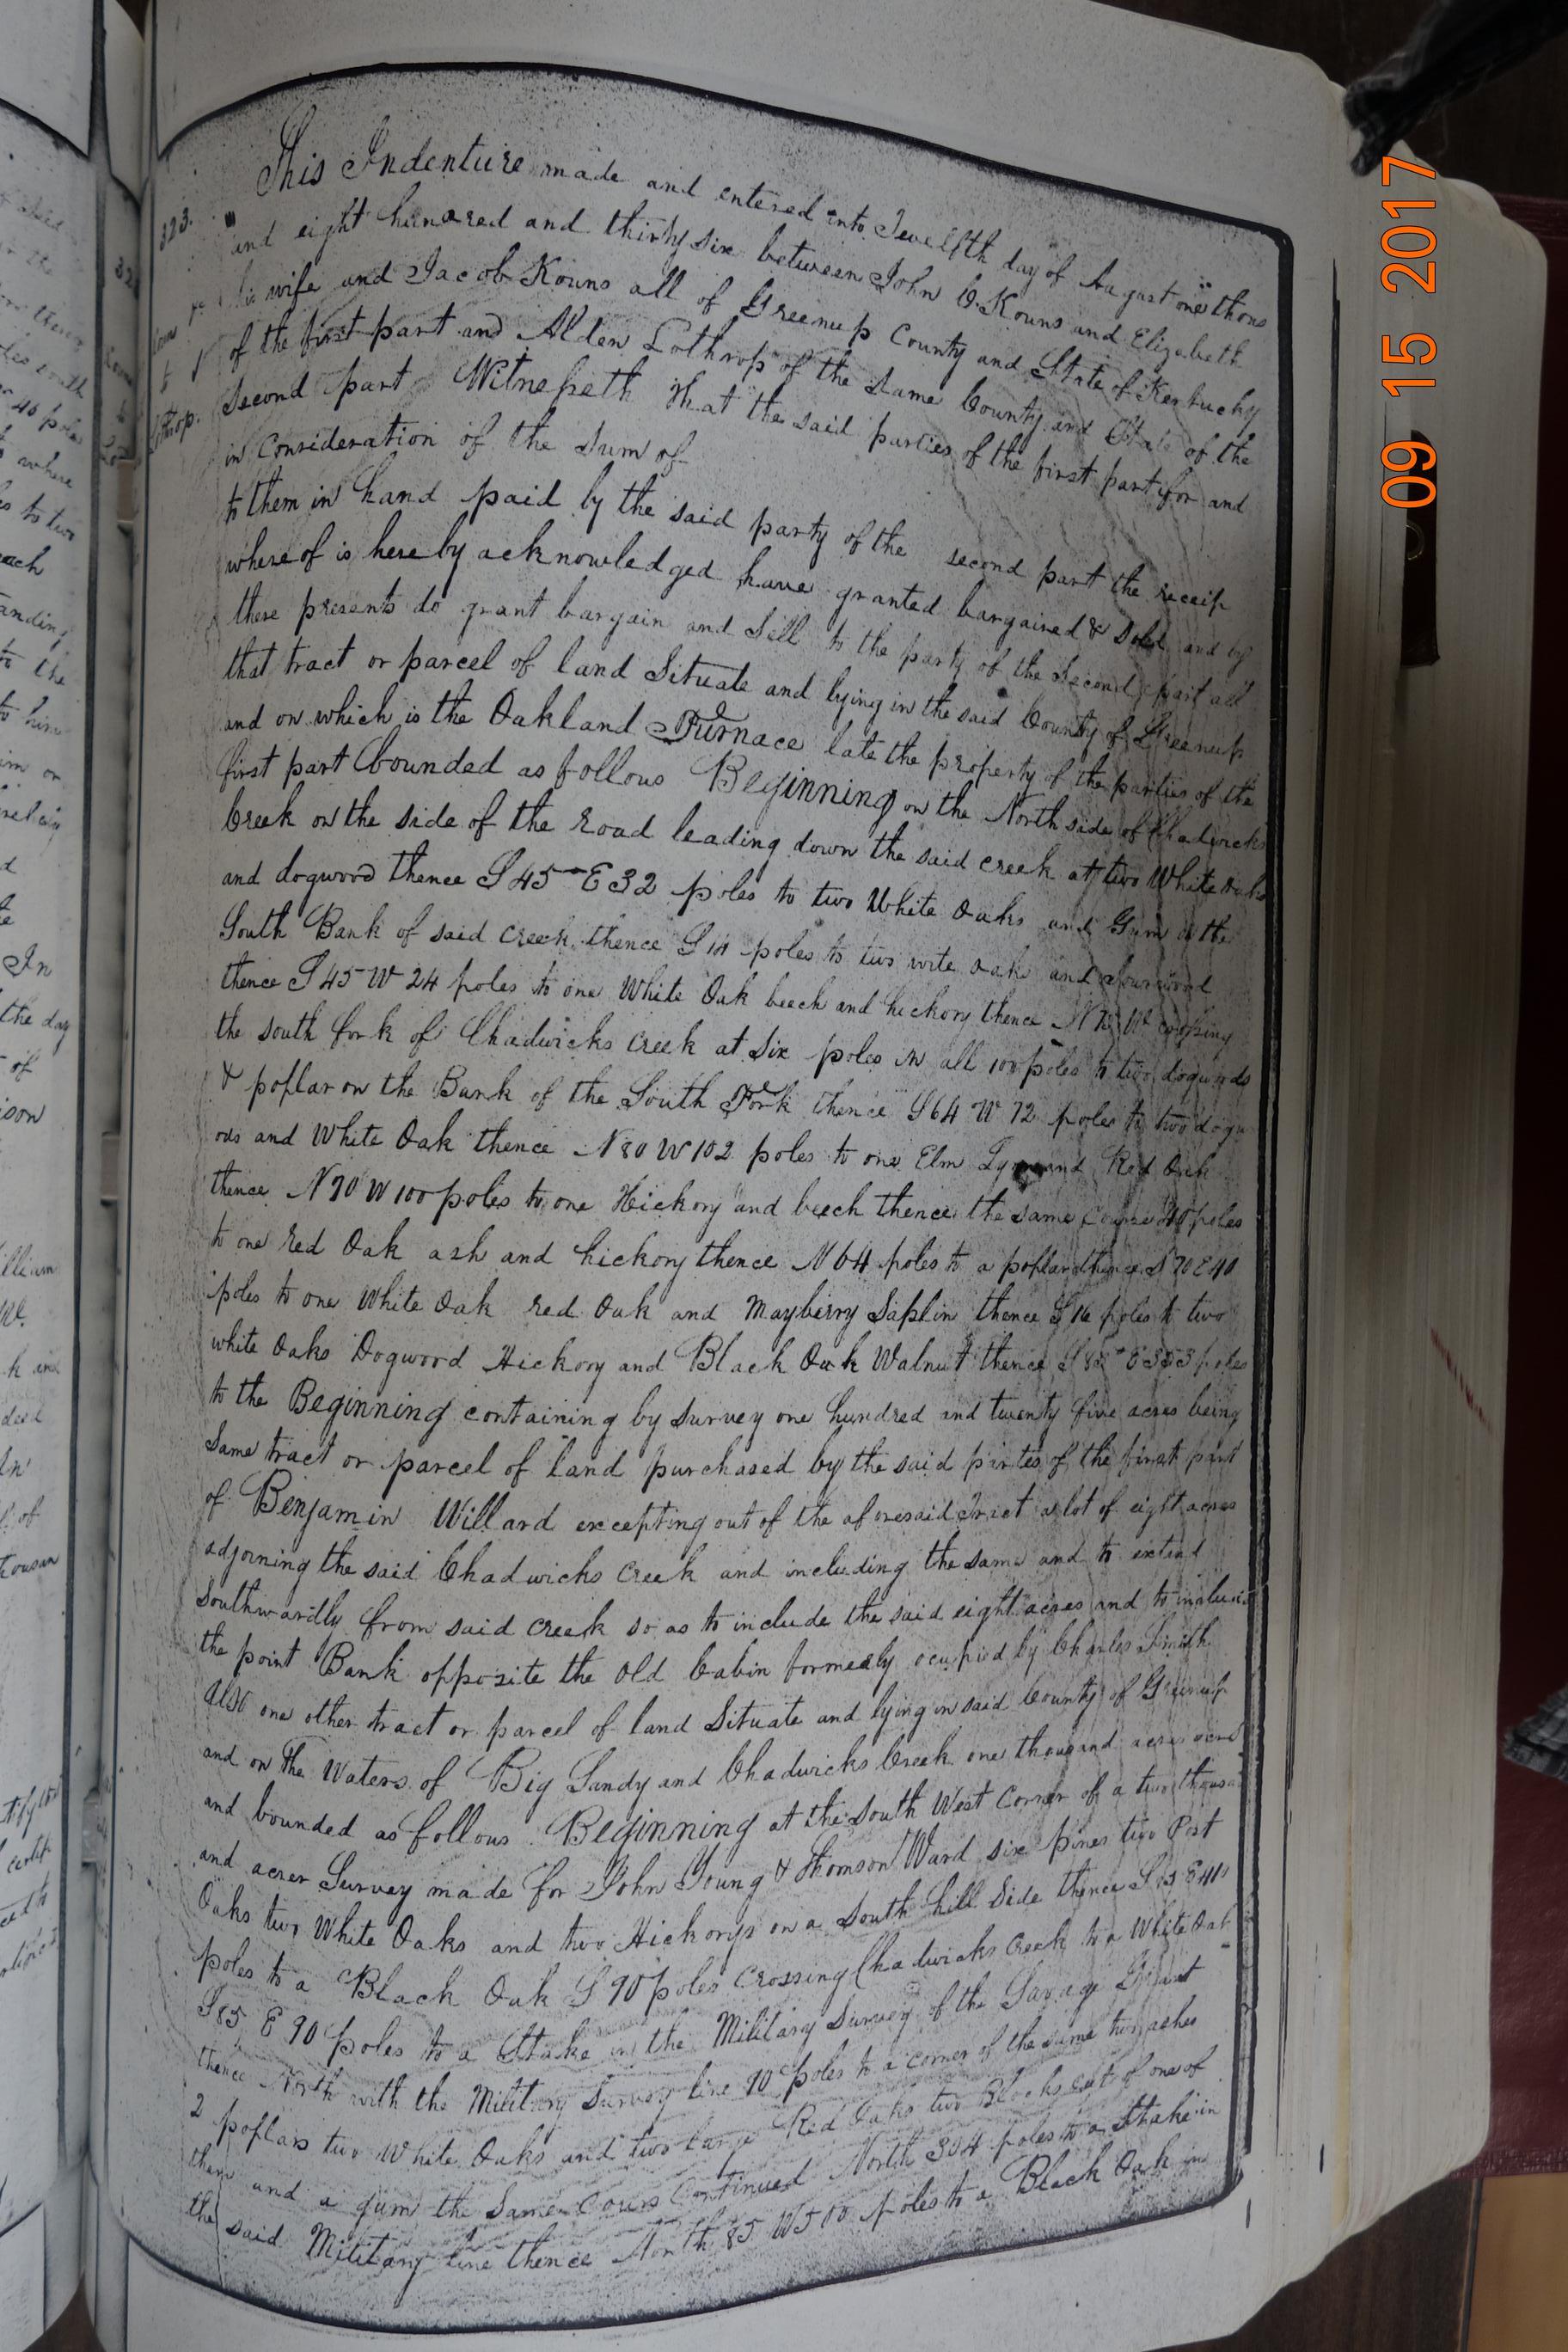 This Indenture made and entered into Twelfth day of August one thous
and eight hundred and thirty six between John C. Kouns and Elizabeth
his wife and Jacob Kouns all of Greenup County and State of Kentucky
of the first part and Alden Lothrop of the Same County and State of the
Second part Witnesseth that the said parties of the first part for and
in consideration of the Sum of
to them in hand paid by the said party of the second part the receip
whereof is hereby acknowledged have granted bargained & sold and by
these presents do grant bargain and Sell to the party of the Second part all
that tract or parcel of land Situate and lying in the said County of Greenup
and on which is the Oakland Furnace late the property of the parties of the
first part bounded as follows Beginning on the North side of Chadwicks
Creek on the side of the road leading down the said creek at two White oaks
and dogwood thence S 45 E 32 poles to two White Oaks and Gum at the
South Bank of said creek thence S poles to two wite oaks and Sourwood
thence S 45 W 24 poles to one White Oak beech and hickory thence N W crossing
the south fork of Chadwicks creek at Six poles in all 100 poles to two dogwoods
& poplar on the Bank of the South Fork thence S 64 W 72 poles to two dogw
ods and White Oak thence N 80 W 102 poles to one Elm and Red Oak
thence N 70 W 100 poles to one Hickory and beech thence the same course poles
to one red Oak ash and hickory thence N 64 poles to a poplar thence S 70 E 40
poles to one White Oak red Oak and Mayberry Saplin thence S 16 poles to two
white Oaks Dogwood Hickory and Black Oak Walnut thence S E poles
to the Beginning containing by Survey one hundred and twenty five acres being
Same tract or parcel of land purchased by the said partes of the first part
of Benjamin Willard excepting out of the aforesaid Tract a lot of eight acres
adjoining the said Chadwicks creek and including the same and to extend
Southwardly from said creek so as to include the said eight acres and to include
the point Bank opposite the Old Cabin formerly ocupied by Charles Smith
also one other tract or parcel of land Situate and lying in said County of Greenup
and on The Waters of Big Sandy and Chadwicks Creek one thousand acres
and bounded as follows Beginning at the South West Corner of a two thous
and acres Survey made for John Young & Thomson Ward six pines two Post
Oaks two White Oaks and two Hickorys on a South hill Side thence S E
poles to a Black Oak S 90 poles crossing Chadwicks creek to a White Oak
S 85 E 90 poles to a Stake in the Military Survey of the Savage Grant
thence North with the Military Survey line 90 poles to a corner of the same two ashes
2 poplars two White Oaks and two large Red Oaks two Blocks cut of one of
them and a gum the Same Cours Continued North 304 poles to a Stake in
the said Military line thence North 85 W 500 poles to a Black Oak in
323.
to
09 15 2017